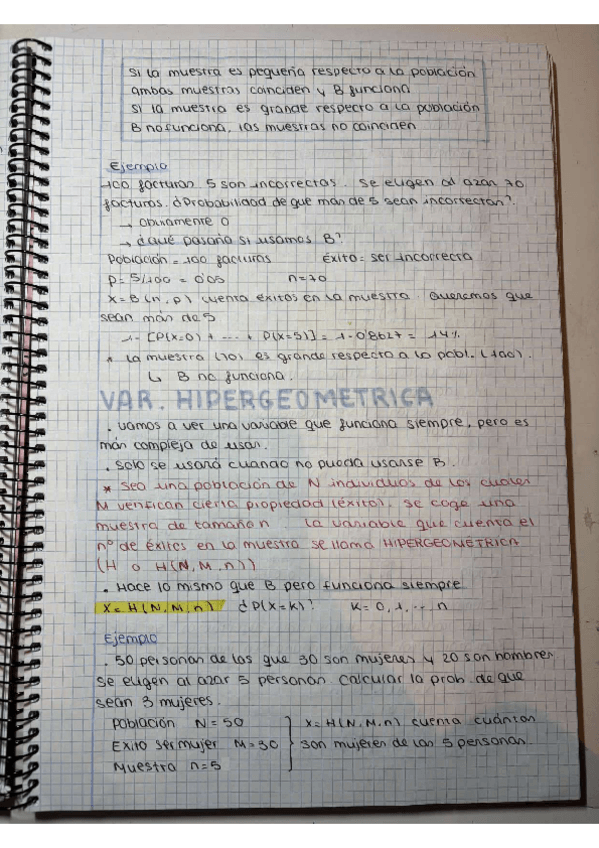 Si la muestra es pequeña respecto a la población
ambas muestras coinciden y B funciona
Si la muestra es grande respecto a la población
B no funciona, las muestras no coinciden
Ejemplo
100 facturas. 5 son incorrectas. Se eligen al azar 70
facturas. ¿Probabilidad de que más de 5 sean incorrectas?
→ obviamente 0
→ ¿qué pasaría si usamos B?
Población = 100 facturas Éxito = ser incorrecta
p = 5/100 = 0'05 n=70
X=B(n,p) cuenta éxitos en la muestra. Queremos que
sean más de 5
1 - [P(X=0) + ... + P(X=5)] = 1 - 0'8627 = 14%
la muestra (70) es grande respecto a la pobl. (100).
↳ B no funciona.
VAR. HIPERGEOMETRICA
. Vamos a ver una variable que funciona siempre, pero es
más compleja de usar.
. Solo se usará cuando no pueda usarse B.
* Sea una población de N individuos de los cuales
M verifican cierta propiedad (éxito). Se coge una
muestra de tamaño n La variable que cuenta el
nº de éxitos en la muestra se llama HIPERGEOMÉTRICA
(H o H(N,M,n))
. Hace lo mismo que B pero funciona siempre
X=H(N,M,n) ¿P(X=K)? K=0,1,... n
Ejemplo
. 50 personas de las que 30 son mujeres y 20 son hombres
se eligen al azar 5 personas. Calcular la prob. de que
sean 3 mujeres.
Población N=50 X=H(N,M,n) cuenta cuántas
Éxito ser mujer M=30 son mujeres de las 5 personas.
Muestra n=5